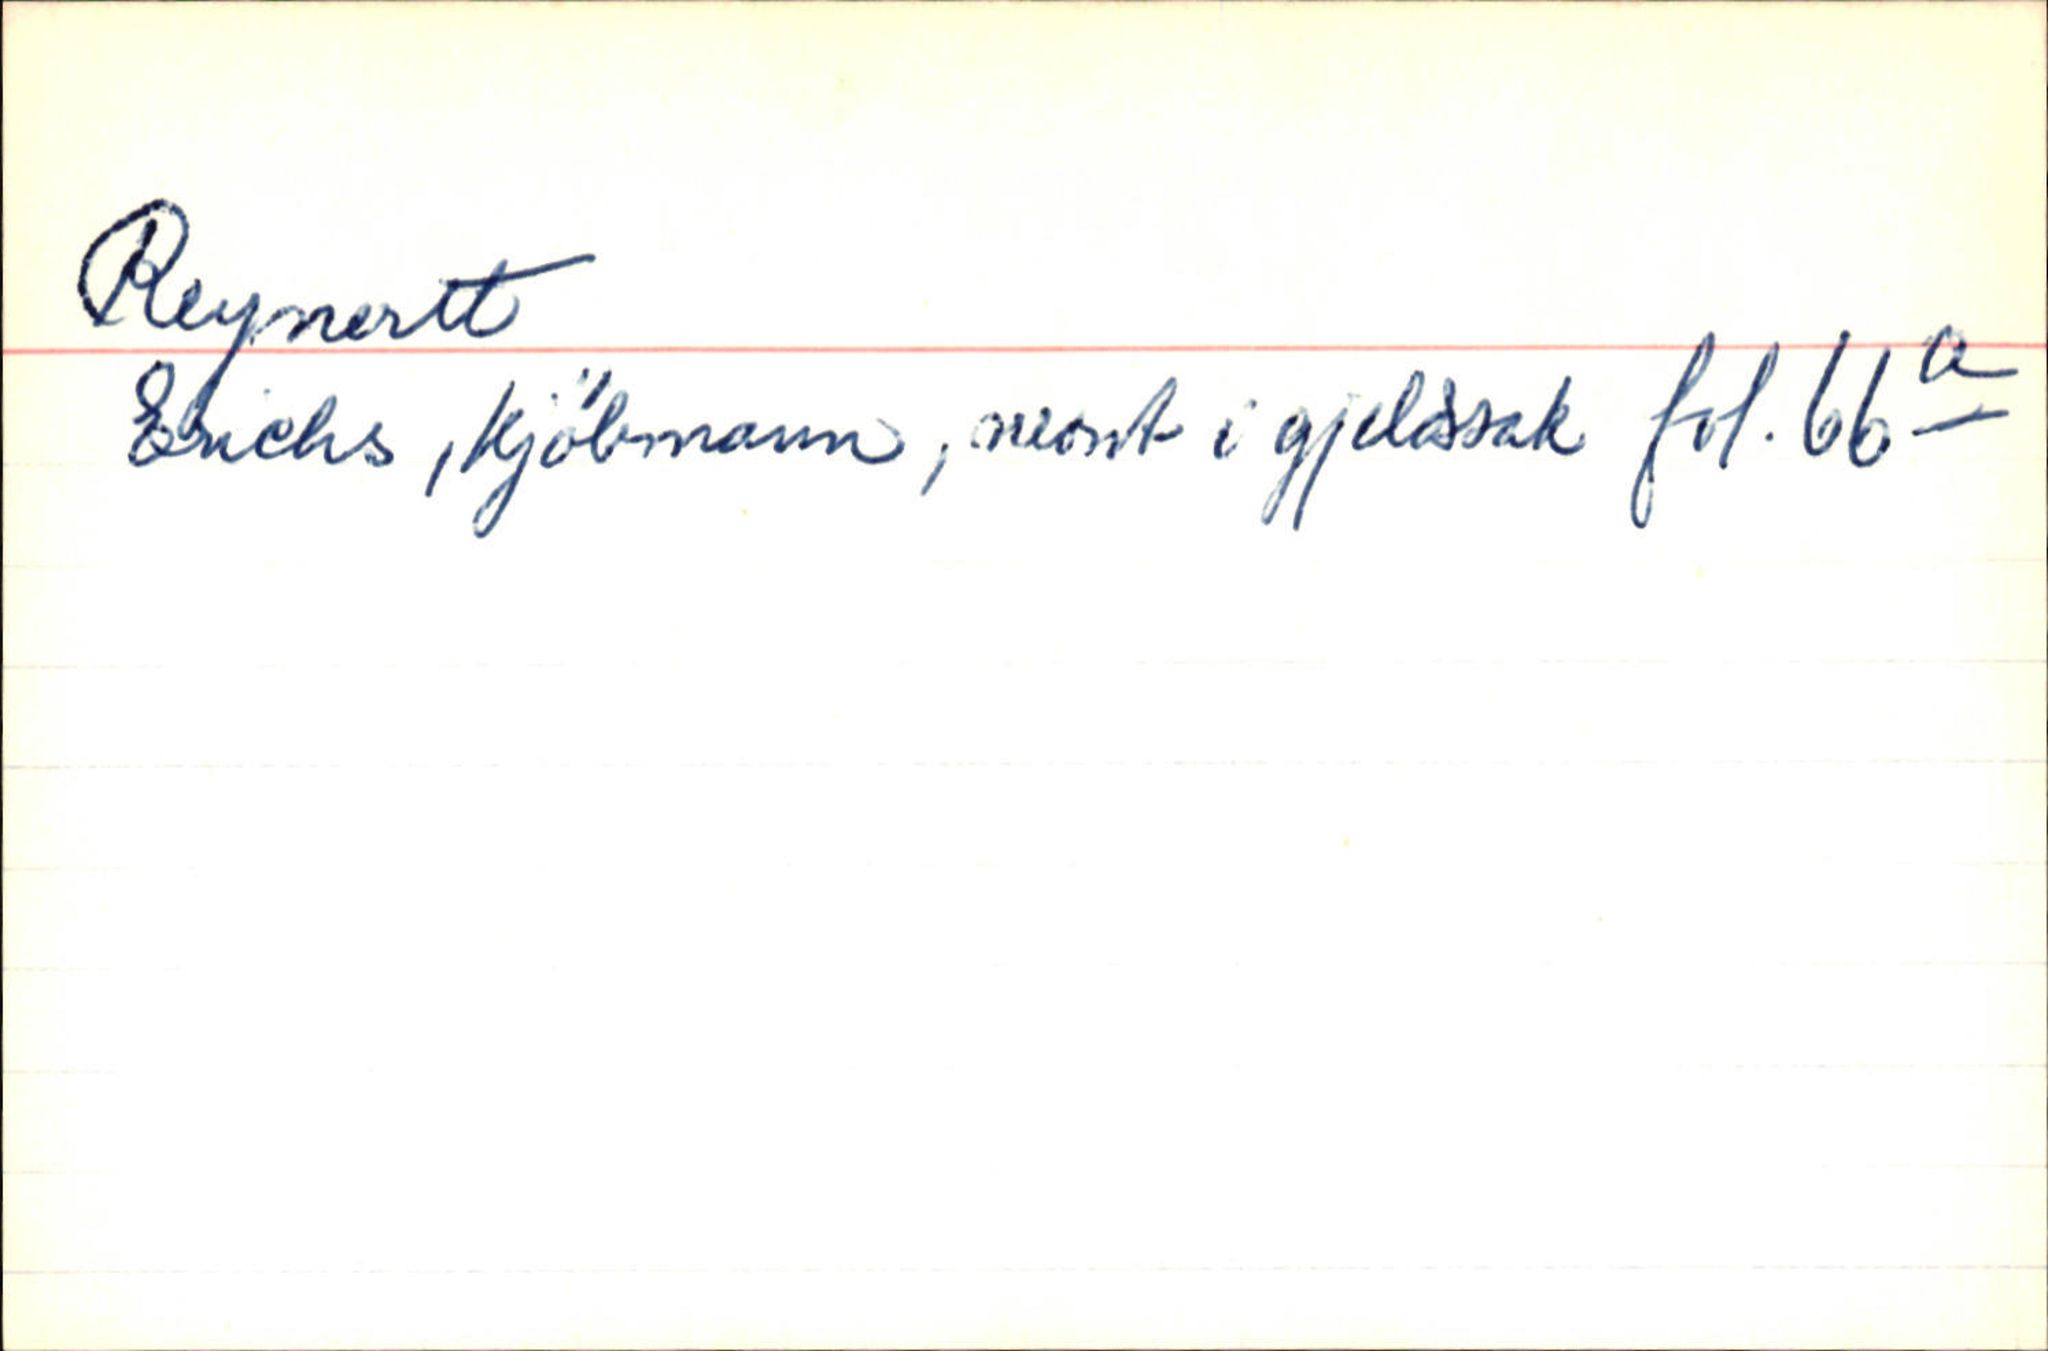 Reynertt
Erichs, kjöbmann, nevnt i gjeldssak fol. 66a